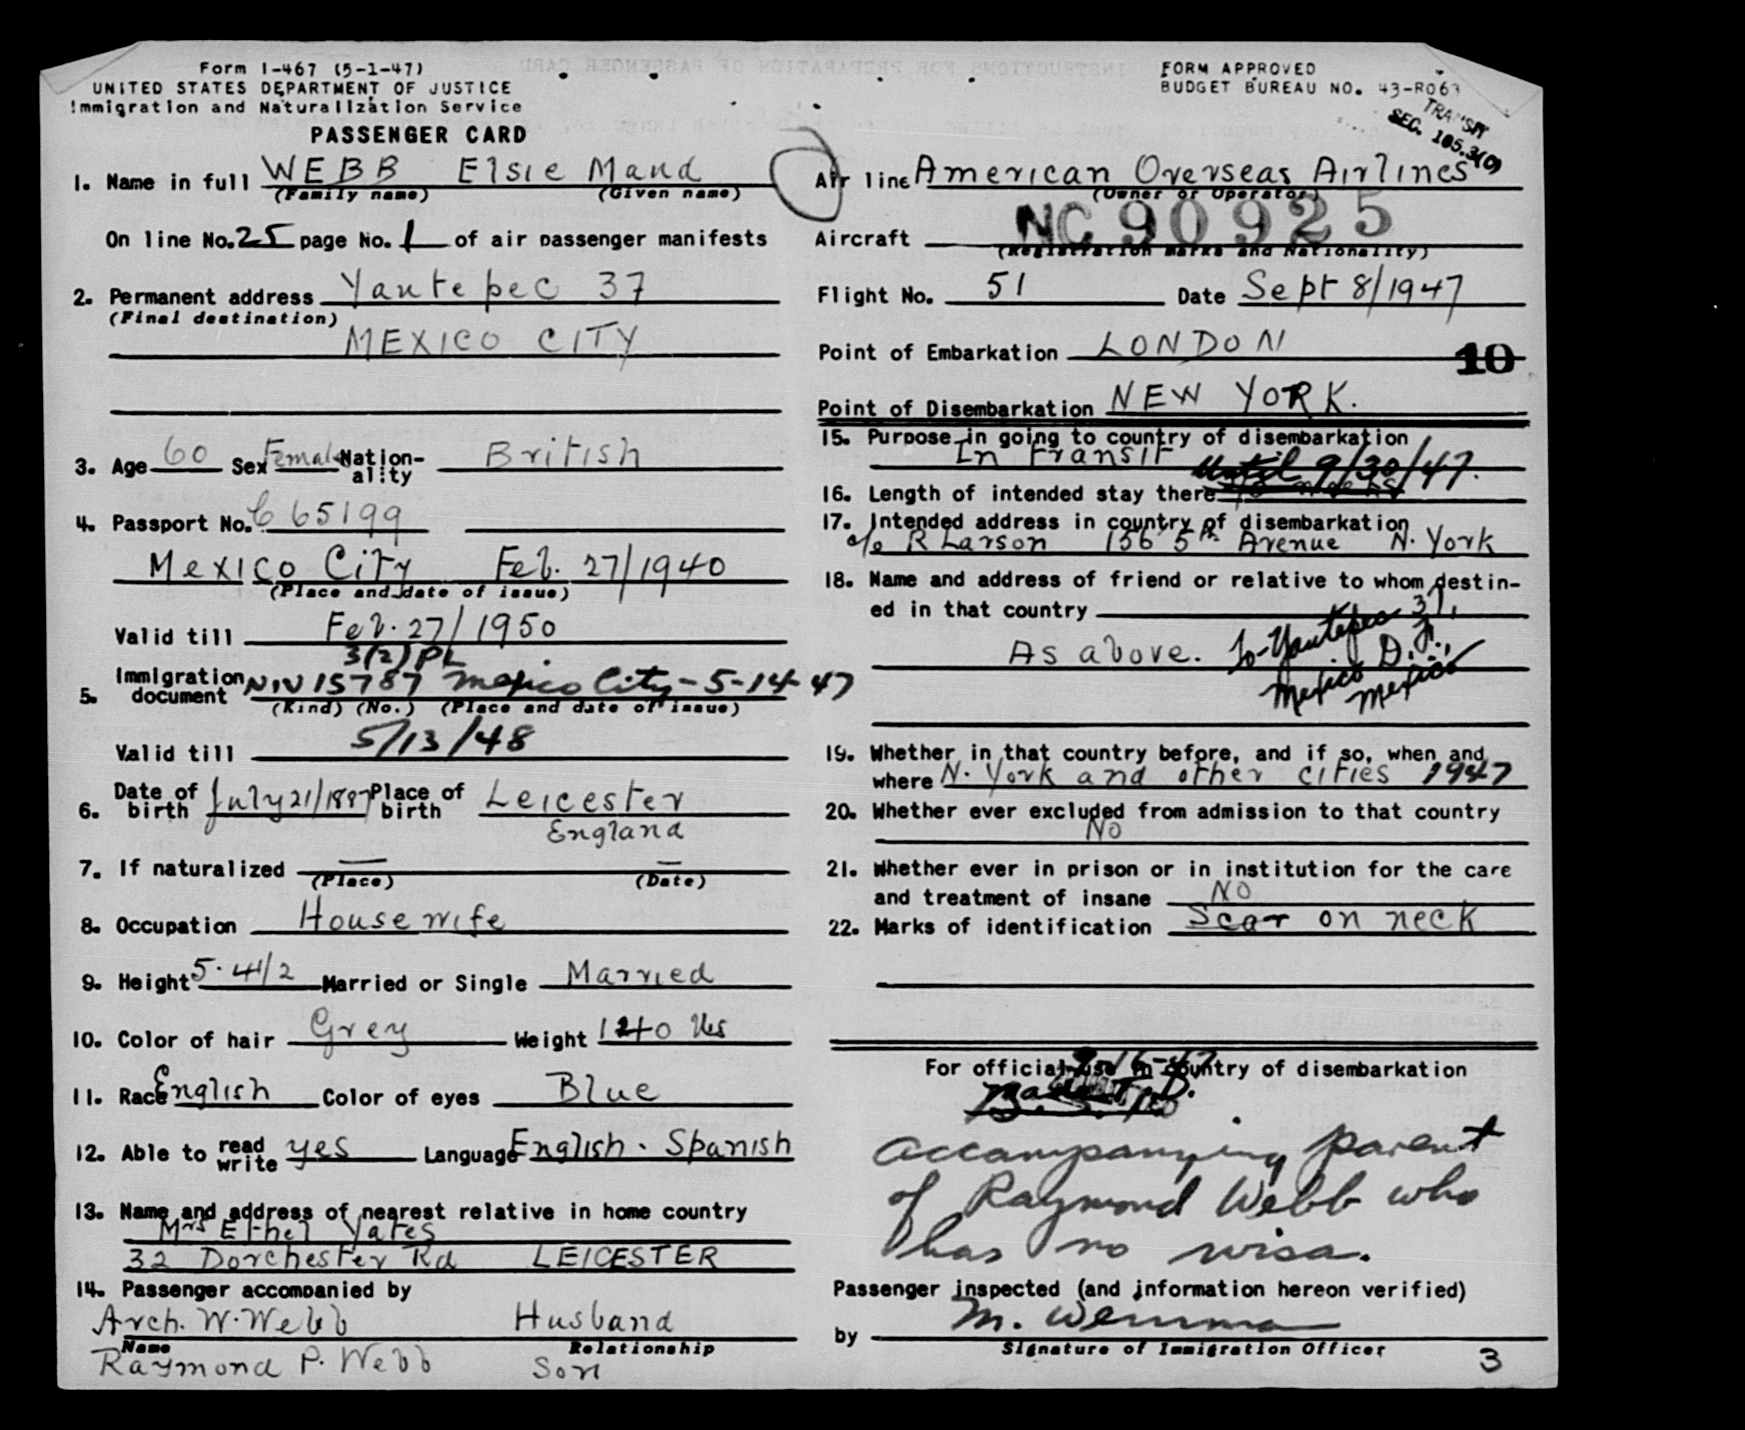 Form I-467 (5-1-47)
UNITED STATES DEPARTMENT OF JUSTICE
Immigration and Naturalization Service
PASSENGER CARD
FORM APPROVED
BUDGET BUREAU NO. 43-R063
TRANSIT
SEC. 105.3(c)
1. Name in full WEBB Elsie Maud
(Family name) (Given name)
On line No. 25 page No. 1 of air passenger manifests
2. Permanent address Yautepec 37
(Final destination)
MEXICO CITY
3. Age 60 Sex Female Nation-ality British
4. Passport No. C 65199
Mexico City Feb. 27/1940
(Place and date of issue)
Valid till Feb. 27/1950
3(2) PL
5. Immigration document NIV 15787 Mexico City - 5-14-47
(Kind) (No.) (Place and date of issue)
Valid till 5/13/48
6. Date of birth July 21/1887 Place of birth Leicester
England
7. If naturalized — —
(Place) (Date)
8. Occupation Housewife
9. Height 5. 4 1/2 Married or Single Married
10. Color of hair Grey Weight 140 lbs
11. Race English Color of eyes Blue
12. Able to read write yes Language English. Spanish
13. Name and address of nearest relative in home country
Mrs Ethel Yates
32 Dorchester Rd LEICESTER
14. Passenger accompanied by
Arch. W. Webb Husband
Name Relationship
Raymond P. Webb Son
Air line American Overseas Airlines
(Owner or Operator)
Aircraft NC 90925
(Registration marks and Nationality)
Flight No. 51 Date Sept 8/1947
Point of Embarkation LONDON
10
Point of Disembarkation NEW YORK.
15. Purpose in going to country of disembarkation
In transit
until 9/30/47.
16. Length of intended stay there
17. Intended address in country of disembarkation
c/o R Larson 156 5th Avenue N. York
18. Name and address of friend or relative to whom destin-
ed in that country
As above. To-Yautepec 37,
Mexico D.F.,
Mexico
19. Whether in that country before, and if so, when and
where N. York and other cities 1947
20. Whether ever excluded from admission to that country
No
21. Whether ever in prison or in institution for the care
and treatment of insane NO
22. Marks of identification Scar on neck
For official use in country of disembarkation
9-15-47
accompanying parent
of Raymond Webb who
has no visa.
Passenger inspected (and information hereon verified)
by M.
Signature of Immigration Officer
3